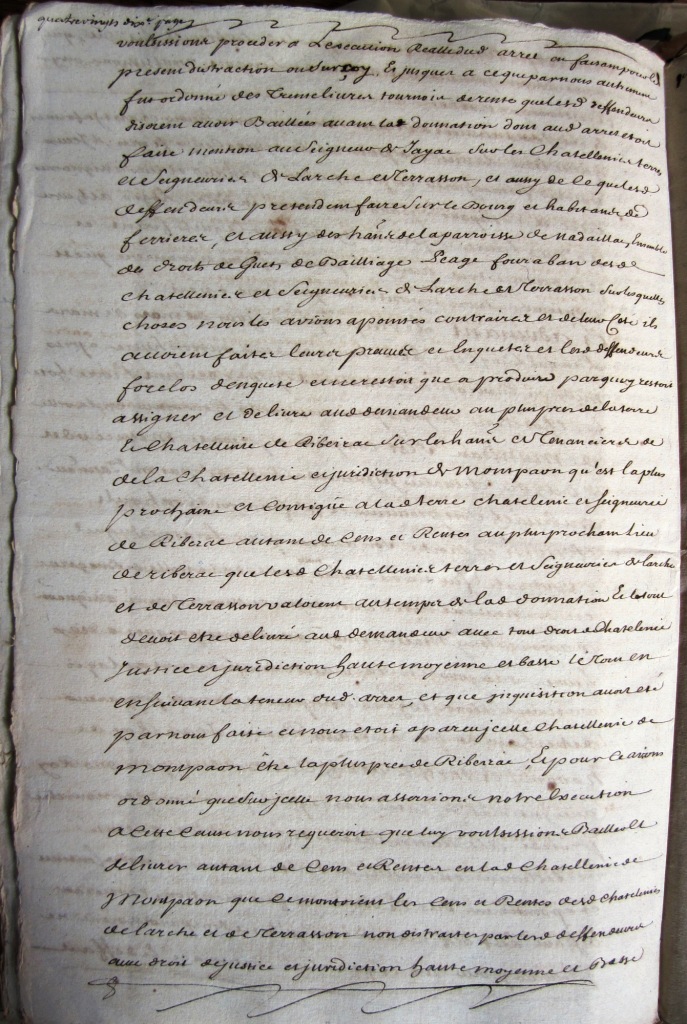 quatrevingts dixe page
voulsissions proceder a Lexecution Realle dud arrest en faisant pour le
present distraction ou surçoy, Et jusques a ce que par nous autrement
fut ordonné des Trente livres tournois de rente que lesd deffendeurs
disoient avoir Baillées avant lad donnation dont aud arrest etoit
faite mention au Seigneur de Jayac sur les Chatellenies terres
et Seigneuries de Larche et Terrasson, et aussy de ce que lesd
deffendeurs pretendent faire sur le Bourg et habitans de
ferrieres, et aussy des hans de la parroisse de nadaillac, Ensemble
des droits de Guets de Bailliage Peage four a ban desd
Chatellenies et Seigneuries de Larche et Terrasson sur lesquelles
choses nous les avions apointés contraires et de leur Coté ils
avoient faites leurs preuves et Enquetes et lesd deffendeurs
forclos denqueste et ne restoit que a produire parquoy restoit
assigner et delivrer aud demandeur au plus pres de la terre
Et Chatellenie de Riberac sur les hans et Tenanciers de
de la Chatellenie et juridiction de Montpaon qu'est la plus
prochaine et Contigüe a lad terre chatelenie et seigneurie
de Riberac autant de Cens et Rentes au plus prochain lieu
de riberac que lesd Chatellenies terres et Seigneuries de larche
et de Terrasson valoient au temps de lad donnation Et le tout
devoit etre delivré aud demandeur avec tous droits de Chatelenie
Justice et juridiction haute moyenne et basse le Tout en
ensuivant la teneur dud. arrest, et que jnquisition avoit eté
par nous faite et nous etoit aparu jcelle Chatellenie de
montpaon être la plus pres de Riberac, Et pour Ce avions
ordonné que sur jcelle nous asseorions notre Execution
a Cette Cause nous requeroit que luy voulsissions Bailler et
delivrer autant de Cens et Rentes en lad Chatellenie de
Montpaon que Se montoient les Cens et Rentes desd Chatelenies
de larche et de Terrasson non distraites par lesd deffendeurs
avec droit de justice et juridiction haute moyenne et Basse